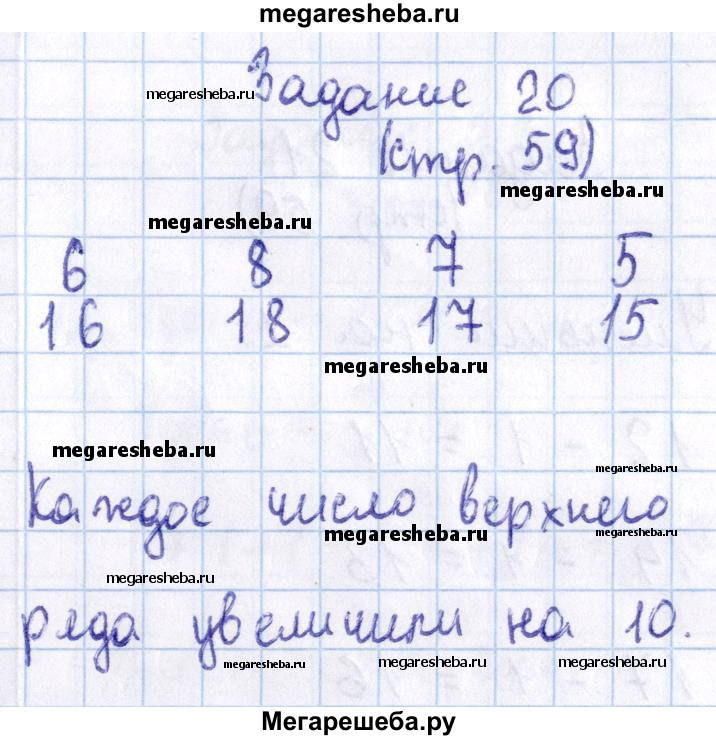 megaresheba.ru
megaresheba.ru Задание 20
(стр. 59)
megaresheba.ru
megaresheba.ru
6 8 7 5
16 18 17 15
megaresheba.ru
megaresheba.ru
megaresheba.ru
Каждое число верхнего
megaresheba.ru megaresheba.ru
megaresheba.ru
ряда увеличили на 10.
megaresheba.ru megaresheba.ru megaresheba.ru
Мегарешеба.ру